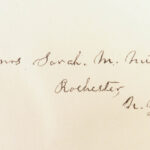 Mrs. Sarah. M.
Rochester,
N.